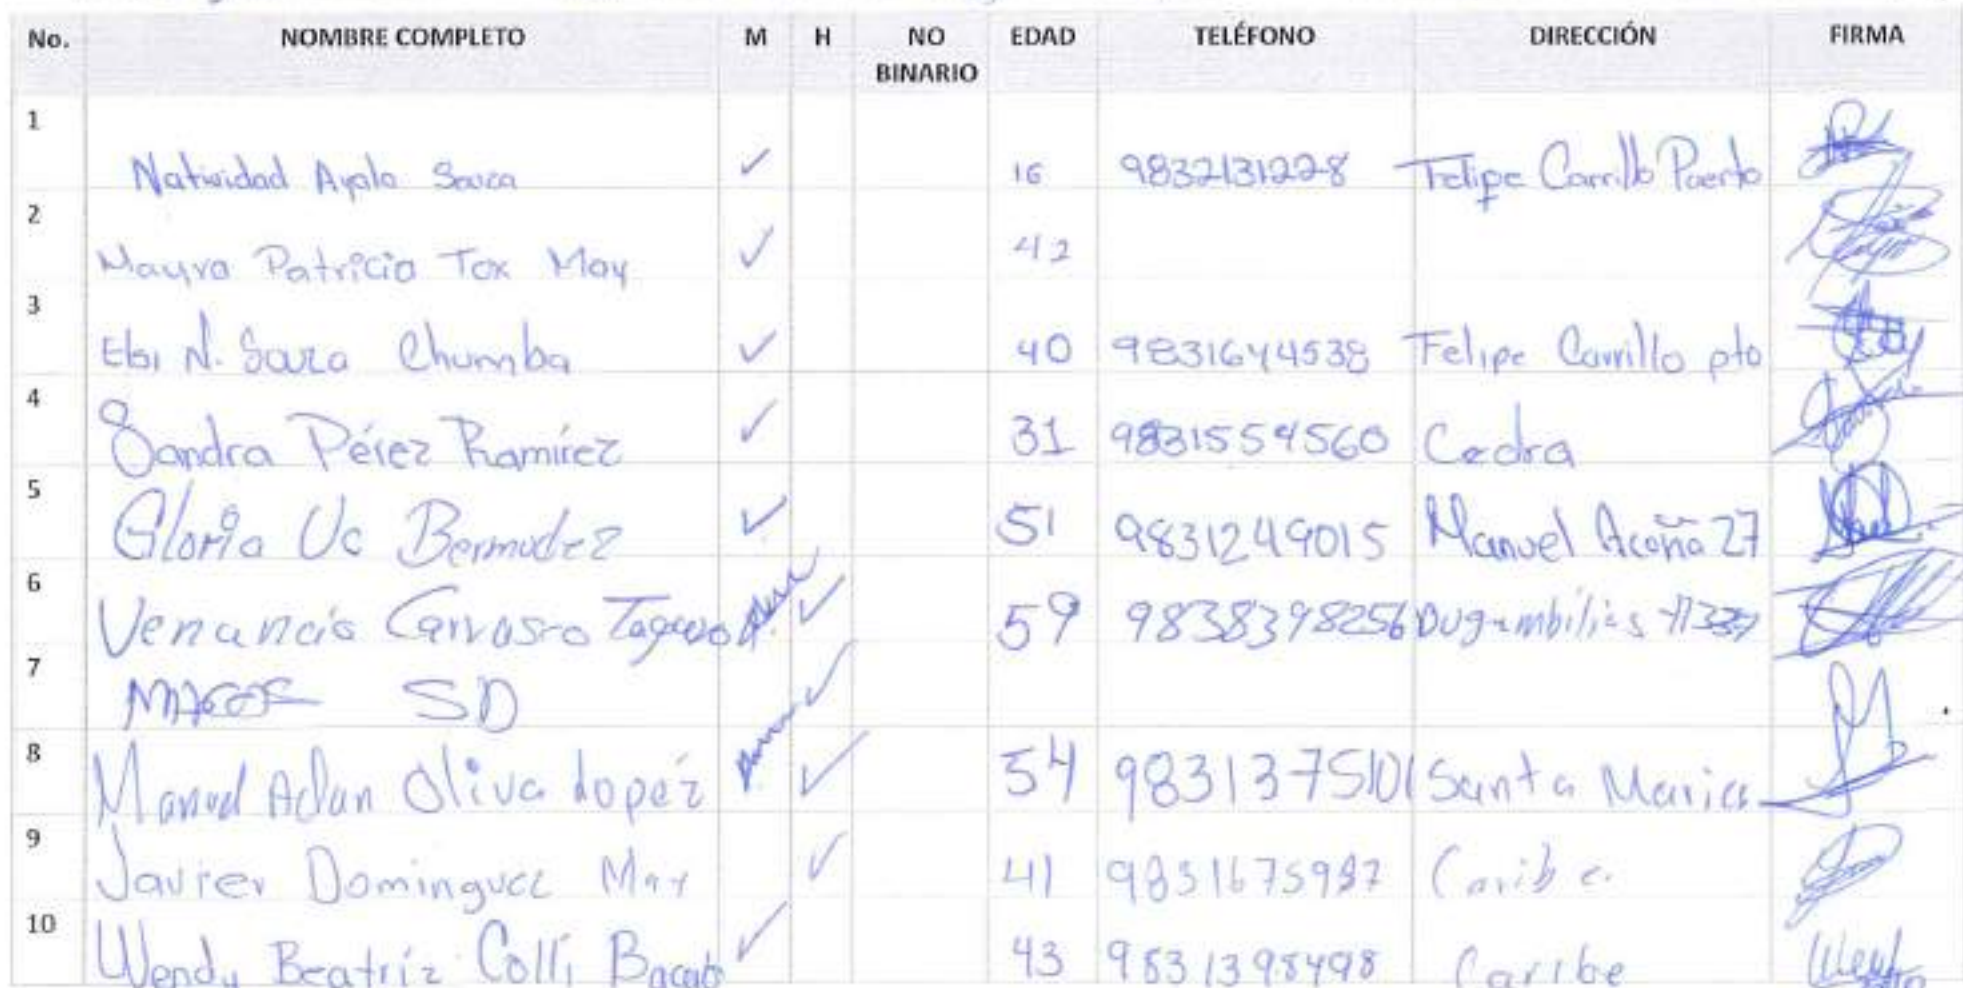 No. NOMBRE COMPLETO M H NO BINARIO EDAD TELÉFONO DIRECCIÓN FIRMA
1 Natividad Ayala Souza ✓ 16 9832131228 Felipe Carrillo Puerto
2 Mayra Patricia Tox May ✓ 42
3 Elsi N. Souza Chumba ✓ 40 9831644538 Felipe Carrillo pto
4 Sandra Pérez Ramírez ✓ 31 9831554560 Cedra
5 Gloria Uc Bermudez ✓ 51 9831249015 Manuel Acoña 27
6 Venancio ✓ 59 9838398256
7 SD ✓
8 Manuel Adan Oliva Lopéz ✓ 54 9831375101 Santa Maria
9 Javier Dominguez May ✓ 41 9831675987 Caribe
10 Wendy Beatriz Collí Bacab ✓ 43 9831398498 Caribe